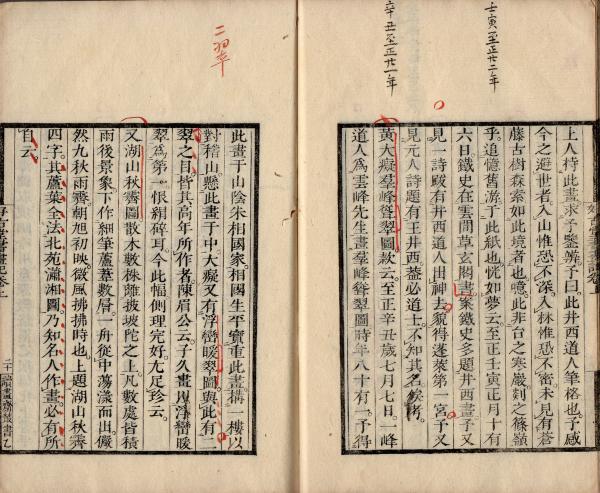 壬寅至正廿二年
辛丑至正廿一年
上人持此畫求予鑒辨予曰此井西道人筆格也予感
今之避世者入山惟恐不深入林惟恐不密未見有蒼
藤古樹森索如此境者也噫此非台之寒巖剡之篠嶺
乎追憶舊游于此紙也恍如夢云至正壬寅正月十有
六日鐵史在雲間草玄閣書案鐵史多題井西畫予又
見一詩跋有井西道人出神去貌得蓬萊第一宮予又
見元人詩題有王井西葢必道士不知其名俟考
黃大癡羣峰聳翠圖款云至正辛丑歲七月七日一峰
道人為雲峰先生畫羣峰聳翠圖時年八十有一予得
此畫于山陰朱相國家相國生平寶重此畫搆一樓以
對稽山懸此畫于中大癡又有浮巒暖翠圖與此有二
翠之目皆其高年所作者陳眉公云子久畫以浮巒暖
翠為第一恨絹碑耳今此幅側理完好尤足珍云
又湖山秋霽圖散木數株離披坡陀之上凡數處皆積
雨後景象下作細筆蘆葦數層一舟從中蕩漾而出儼
然九秋雨霽朝旭初映微風拂拂時也上題湖山秋霽
四字其蘆葉全法北苑瀟湘圖乃知名人作畫必有所
自云
好古堂書畫記卷上